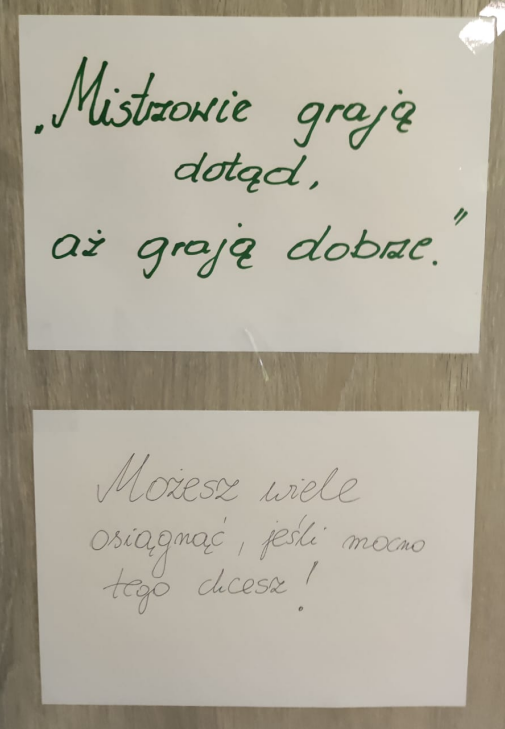 „Mistrzowie grają
dotąd,
aż grają dobrze."
Możesz wiele
osiągnąć, jeśli mocno
tego chcesz!